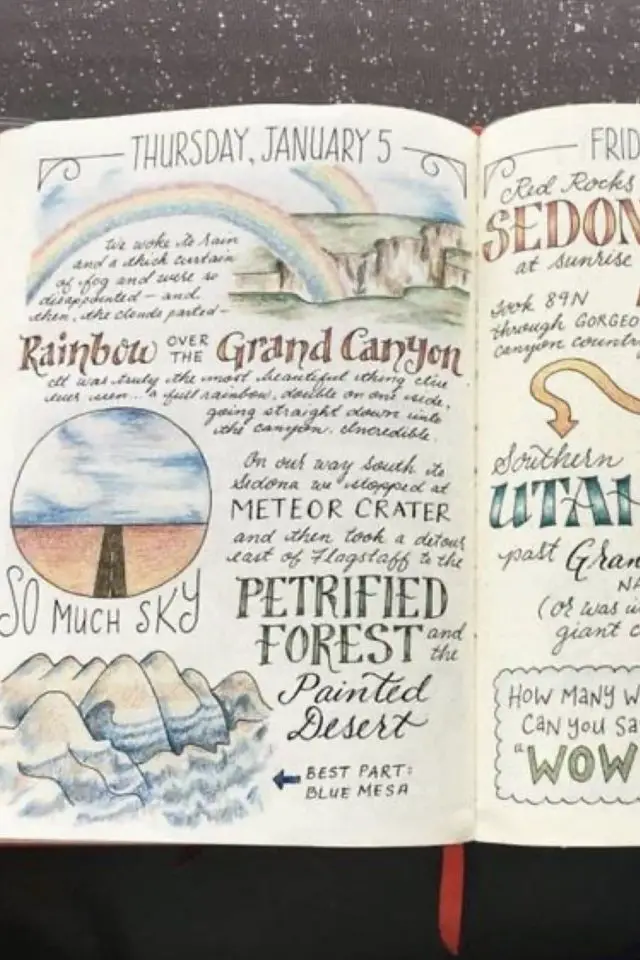 THURSDAY, JANUARY 5
We woke to rain
and a thick curtain
of fog and were so
disappointed - and
then, the clouds parted -
Rainbow OVER THE Grand Canyon
It was truly the most beautiful thing I've
ever seen... a full rainbow, double on one side,
going straight down into
the canyon. Incredible.
On our way south to
Sedona we stopped at
METEOR CRATER
and then took a detour
east of Flagstaff to the
PETRIFIED
FOREST and the
Painted
Desert
SO MUCH SKY
BEST PART:
BLUE MESA
FRID
Red Rocks
SEDON
at sunrise
took 89N
through GORGEO
canyon country
Southern
UTAH
past Gran
NA
(or was
giant c
HOW MANY W
CAN YOU SA
a WOW